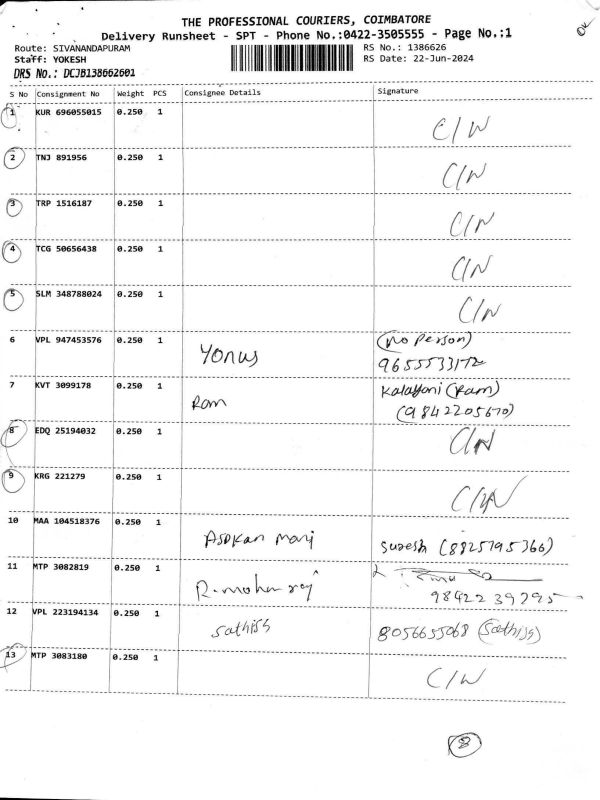 Ok
THE PROFESSIONAL COURIERS, COIMBATORE
Delivery Runsheet - SPT - Phone No.:0422-3505555 - Page No.:1
Route: SIVANANDAPURAM
Staff: YOKESH
DRS No.: DCJB138662601
RS No.: 1386626
RS Date: 22-Jun-2024
S No Consignment No Weight PCS Consignee Details Signature
1 KUR 696055015 0.250 1 C/N
2 TNJ 891956 0.250 1 C/N
3 TRP 1516187 0.250 1 C/N
4 TCG 50656438 0.250 1 C/N
5 SLM 348788024 0.250 1 C/N
6 VPL 947453576 0.250 1 Yonus (No Person)
9655533172
7 KVT 3099178 0.250 1 Ram Kalayani (Ram)
(9842205670)
8 EDQ 25194032 0.250 1 C/N
9 KRG 221279 0.250 1 C/N
10 MAA 104518376 0.250 1 Asokan Mani Suresh (8825795366)
11 MTP 3082819 0.250 1 R. mohan raj
9842239295
12 VPL 223194134 0.250 1 Sathiss 8056655068 (Sathiss)
13 MTP 3083180 0.250 1 C/N
8